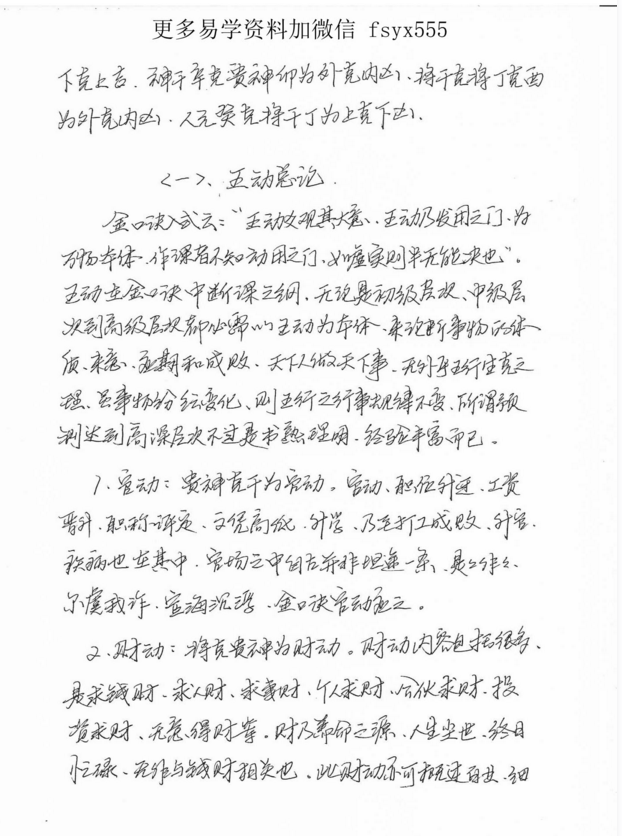 更多易学资料加微信 fsyx555
下克上吉．神干辛克贵神卯为外克内凶、将干克将丁克酉
为外克内凶．人元癸克将干丁为上克下凶．
<一>、五动总论．
金口诀入式云：“五动爻观其大意、五动乃发用之门、为
万物本体．作课者不知动用之门、如嘘实则半无能决也”。
五动在金口诀中断课之纲、无论是初级层次、中级层
次到高级层次都必需以五动为本体、来论断事物的体
质、来意、应期和成败、天下人做天下事、无外乎五行生克之
理、虽事物纷纭变化、则五行之行事规律不变、所谓预
判达到高深层次不过是书熟理明．经验丰富而已。
1、官动：贵神克干为官动。官动、职位升迁、工资
晋升．职称评定、文凭高低．升学、乃至打工成败、升官．
疾病也在其中．官场之中自古并非坦途一条、是是非非、
尔虞我诈．宦海沉浮、金口诀官动应之。
2、财动：将克贵神为财动。财动内容包括很多、
是求钱财．求人财、求妻财、个人求财、合伙求财、投
资求财、无意得财等。财乃养命之源、人生尘世、终日
忙碌、无非与钱财相关也、此财动亦可概述百世、细